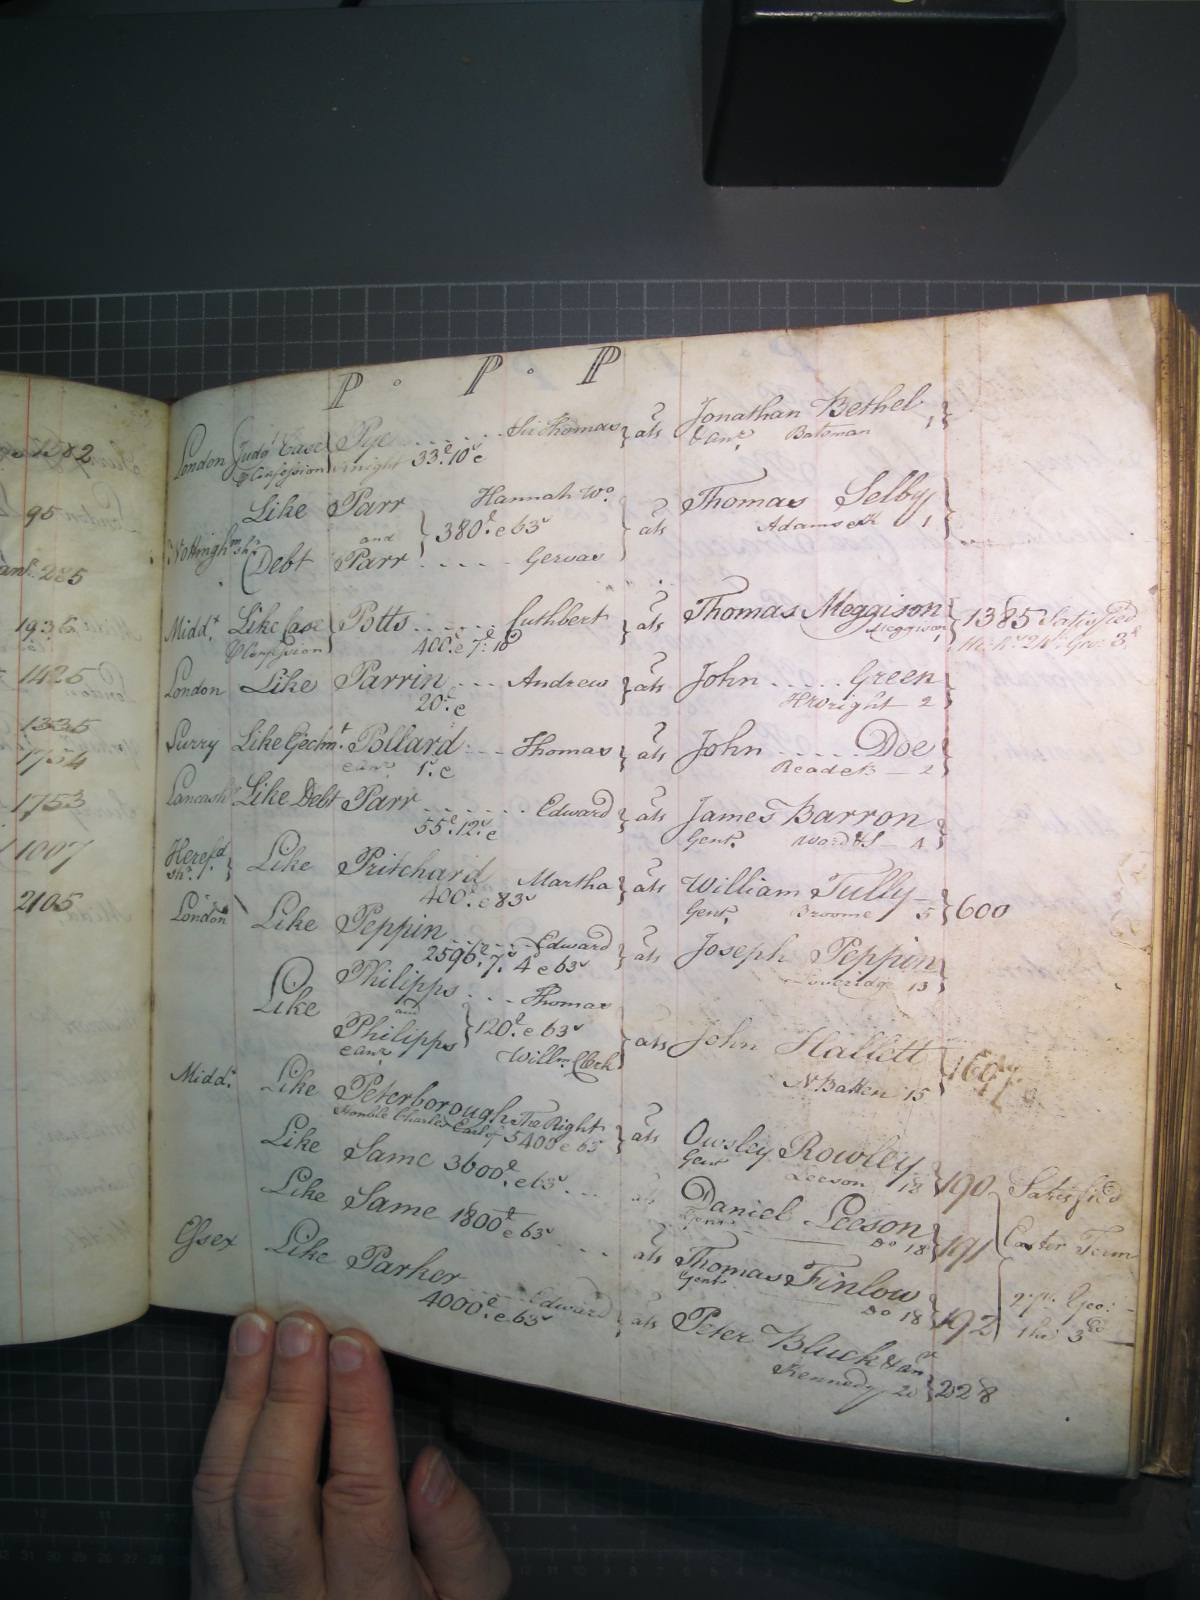 P . P . P
London Judgt Case Pye ....... Sir Thomas } ats Jonathan Bethel
P Confession Knight 33. 10 c & anr. Bateman 1
Like Parr Hannah Wo. Thomas Selby
and } 380£ c 63s } ats Adams 1
Nottinghmshr Debt Parr ..... Gervas
Midd. Like Case Potts ...... Cuthbert } ats Thomas Meggison } 1385 Satisfied
P Confession 400. c 7. 10 Meggison 1
London Like Parrin ... Andrew } ats John ..... Green
20. c 2
Surry Like Ejectmt. Pollard ... Thomas } ats John ..... Doe
et anr. 1s. c Reade 2
Lancashr Like Debt Parr ....... Edward } ats James Barron
55£. 12. c Gent. Ward 4
Herefd shr. } Like Pritchard Martha } ats William Tully } 600
400. c 83s Gent. Broome 5
London Like Peppin ..... Edward } ats Joseph Peppin
2596£. 7. 4 c 63s 13
Philipps ... Thomas
Like and } 120£ c 63s } ats John Hallett
Philipps Willm. Clerk N. Batten 15
et anr.
Midd. Like Peterborough The Right } ats Owsley Rowley } 190 Satisfied
Honble Charles Earl of 5400 c 63 Gent Leeson 18
Like Same 3600£ c 63s ... ats Daniel Leeson } 191 Easter Term
Gent Do 18
Like Same 1800£ c 63s .... ats Thomas Finlow } 192 Geo:
Gent Do 18 the 3
Essex Like Parker ..... Edward } ats Peter Bluck & anr } 228
4000£ c 63s Kennedy 20
82
95
285
1936
1425
1335
1754
1753
1007
2105